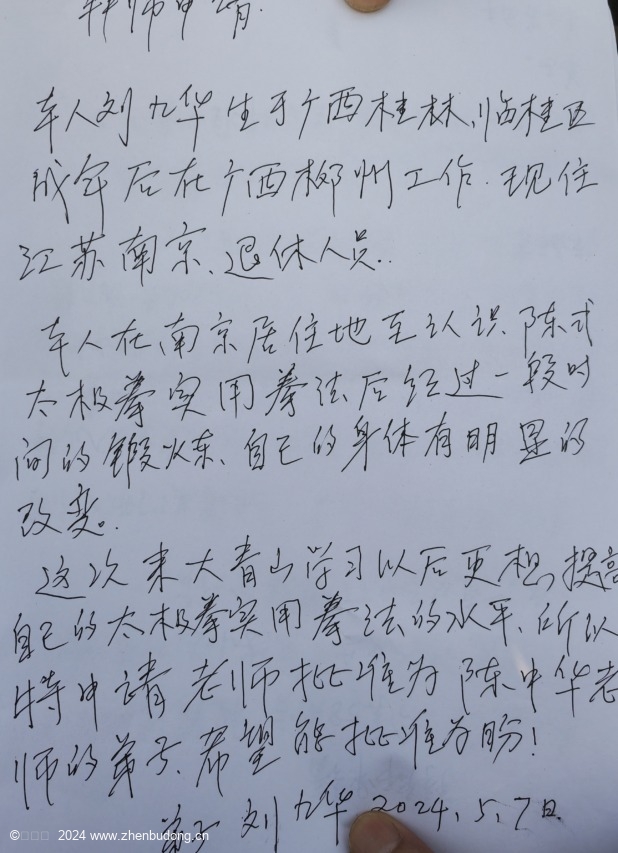 拜师申请
本人刘九华生于广西桂林、临桂区
成年后在广西柳州工作.现住
江苏南京、退休人员.
本人在南京居住地至认识陈式
太极拳实用拳法后经过一段时
间的锻炼、自己的身体有明显的
改变。
这次来大青山学习以后更想提高
自己的太极拳实用拳法的水平、所以
特申请老师批准为陈中华老
师的弟子、希望能批准为盼!
弟子 刘九华 2024、5、7日
© 2024 www.zhenbudong.cn